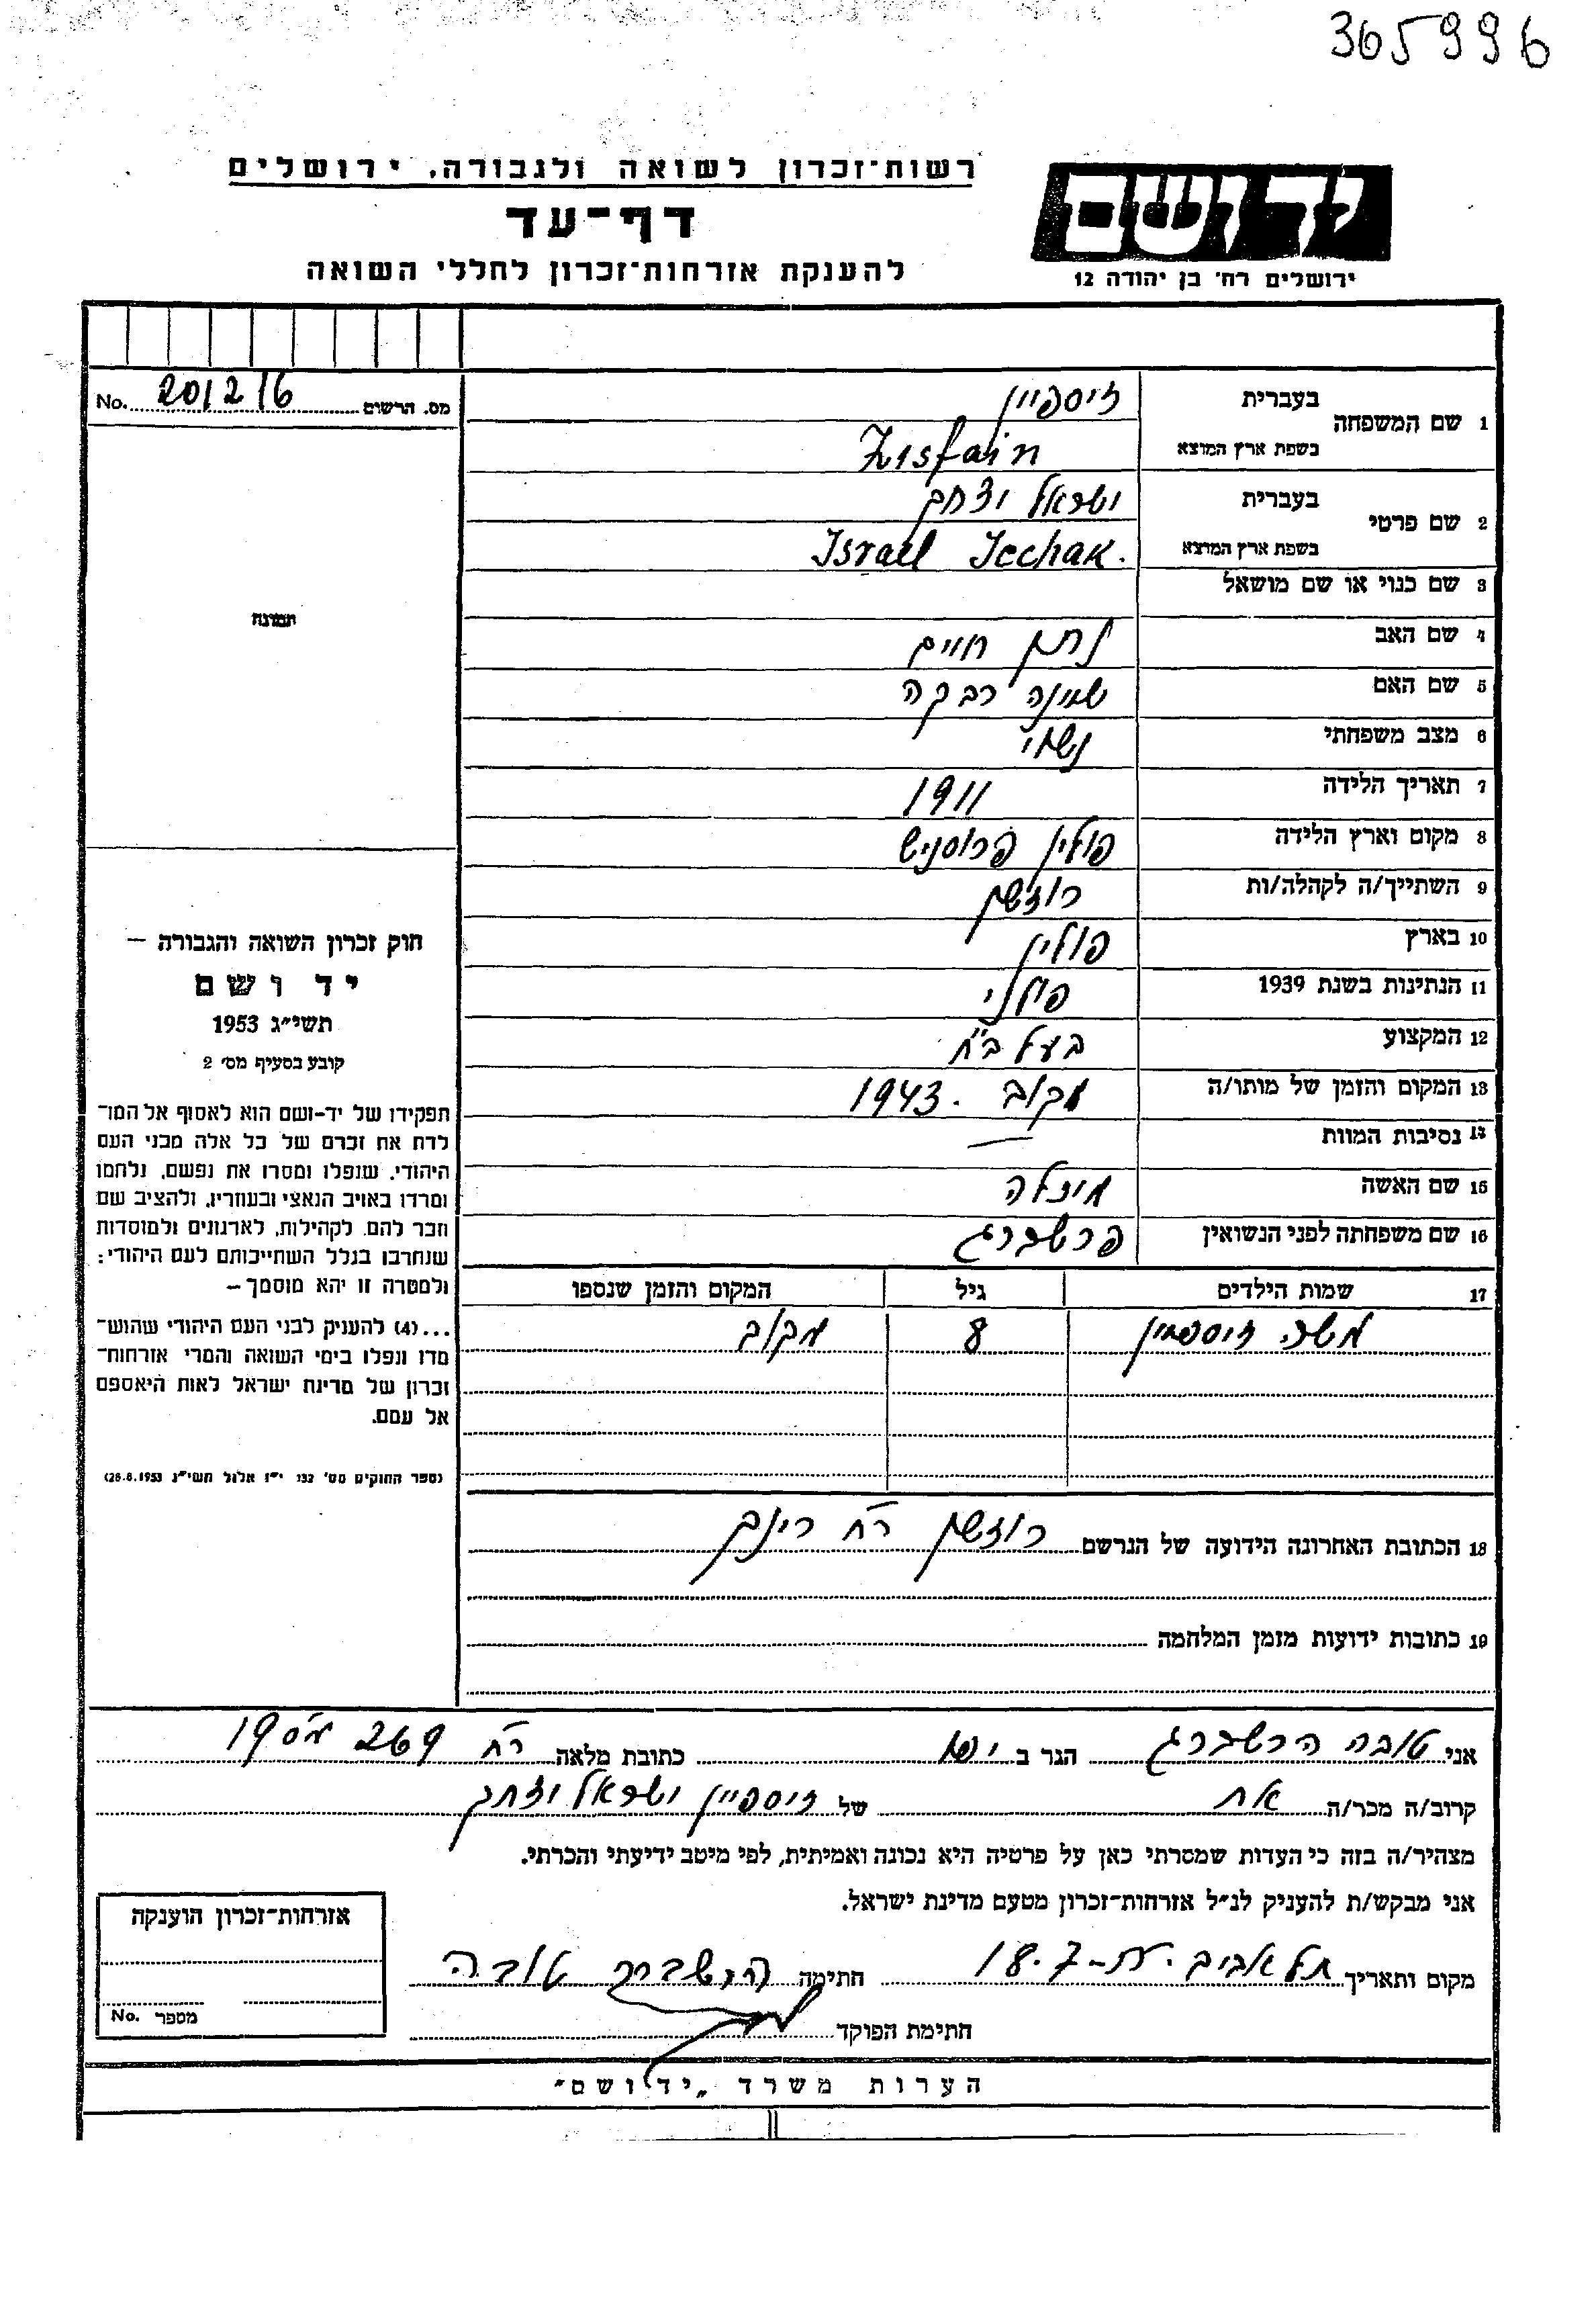 365996
רשות-זכרון לשואה ולגבורה, ירושלים
דף-עד
להענקת אזרחות-זכרון לחללי השואה
יד ושם
ירושלים רח' בן יהודה 12
מס. הרשום 201216 No.
1 שם המשפחה בעברית זיספיין
בשפת ארץ המוצא Zisfain
2 שם פרטי בעברית ישראל יצחק
בשפת ארץ המוצא Israel Icchak.
3 שם כנוי או שם מושאל
4 שם האב נתן חיים
5 שם האם שיינה רבקה
6 מצב משפחתי נשוי
7 תאריך הלידה 1911
8 מקום וארץ הלידה פולין
9 השתייך/ה לקהלה/ות רוז'שץ
10 בארץ פולין
11 הנתינות בשנת 1939 פולני
12 המקצוע בעל
13 המקום והזמן של מותו/ה 1943
14 נסיבות המוות —
15 שם האשה
16 שם משפחתה לפני הנשואין
17 שמות הילדים גיל המקום והזמן שנספו
משה זיספיין 8
18 הכתובת האחרונה הידועה של הנרשם רוז'שץ רח'
19 כתובות ידועות מזמן המלחמה
תמונה
חוק זכרון השואה והגבורה –
יד ושם
תשי"ג 1953
קובע בסעיף מס' 2
תפקידו של יד-ושם הוא לאסוף אל המו-
לדת את זכרם של כל אלה מבני העם
היהודי, שנפלו ומסרו את נפשם, נלחמו
ומרדו באויב הנאצי ובעוזריו, ולהציב שם
וזכר להם, לקהילות, לארגונים ולמוסדות
שנחרבו בגלל השתייכותם לעם היהודי;
ולמטרה זו יהא מוסמך –
...(4) להעניק לבני העם היהודי שהוש-
מדו ונפלו בימי השואה והמרי אזרחות-
זכרון של מדינת ישראל לאות היאספם
אל עמם.
(ספר החוקים מס' 132 י"ז אלול תשי"ג 28.8.1953)
אני טובה הרשברג הגר ב יפו כתובת מלאה רח' 269 מס' 19
קרוב/ה מכר/ה אח של זיספיין ישראל יצחק
מצהיר/ה בזה כי העדות שמסרתי כאן על פרטיה היא נכונה ואמיתית, לפי מיטב ידיעתי והכרתי.
אני מבקש/ת להעניק לנ"ל אזרחות-זכרון מטעם מדינת ישראל.
מקום ותאריך תל אביב 18.7 חתימה הרשברג טובה
חתימת הפוקד
אזרחות-זכרון הוענקה
מספר No.
הערות משרד „יד ושם"